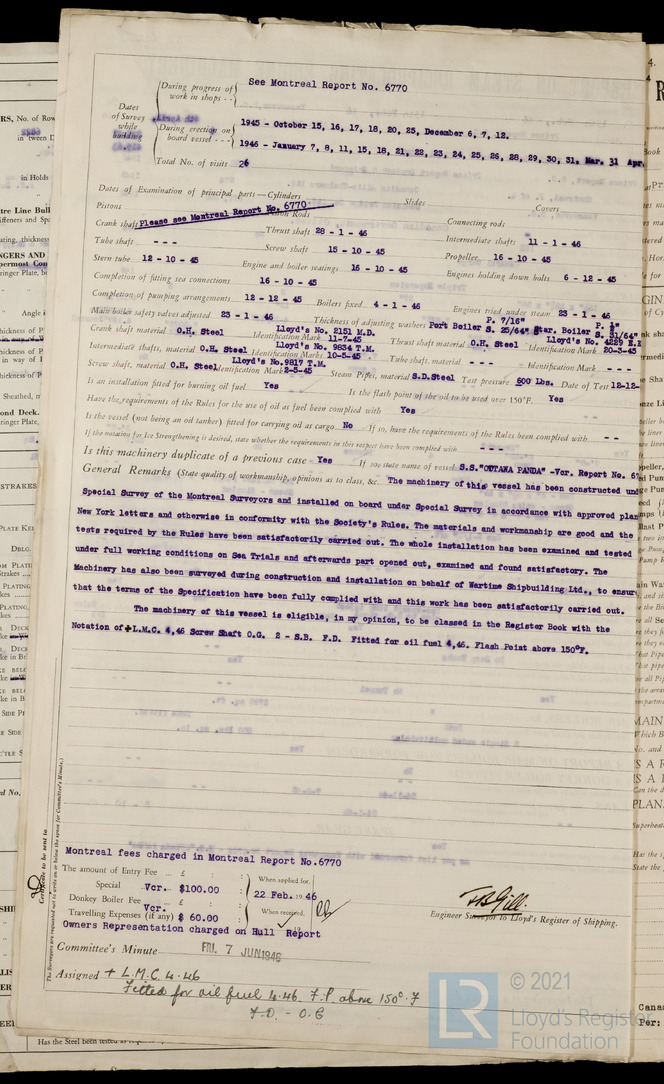 See Montreal Report No. 6770
During progress of work in shops - -
Dates of Survey while building
During erection on board vessel - - -
1945 - October 15, 16, 17, 18, 20, 25, December 6, 7, 12.
1946 - January 7, 8, 11, 15, 18, 21, 22, 23, 24, 25, 26, 28, 29, 30, 31, Mar. 31 Apr.
Total No. of visits 26
Dates of Examination of principal parts—Cylinders Slides
Pistons Rods Covers
Please see Montreal Report No. 6770
Crank shaft Connecting rods
Thrust shaft 28 - 1 - 46
Tube shaft - - - Intermediate shafts 11 - 1 - 46
Screw shaft 15 - 10 - 45
Stern tube 12 - 10 - 45 Propeller 16 - 10 - 45
Engine and boiler seatings 16 - 10 - 45 Engines holding down bolts 6 - 12 - 45
Completion of fitting sea connections 16 - 10 - 45
Completion of pumping arrangements 12 - 12 - 45 Boilers fixed 4 - 1 - 46 Engines tried under steam 23 - 1 - 46
Main boiler safety valves adjusted 23 - 1 - 46 Thickness of adjusting washers Port Boiler P. 7/16" S. 25/64" Star. Boiler
Crank shaft material O.H. Steel Identification Mark Lloyd's No. 2151 M.D. 11-7-45 Thrust shaft material O.H. Steel Identification Mark Lloyd's No. 4229 20-3-45
Intermediate shafts, material O.H. Steel Identification Marks Lloyd's No. 9834 T.M. 10-5-45 Tube shaft, material - - - Identification Mark - - -
Screw shaft, material O.H. Steel Identification Mark Lloyd's No. 9817 T.M. 2-5-45 Steam Pipes, material S.D.Steel Test pressure 600 Lbs. Date of Test 12-12-
Is an installation fitted for burning oil fuel Yes Is the flash point of the oil to be used over 150°F. Yes
Have the requirements of the Rules for the use of oil as fuel been complied with Yes
Is the vessel (not being an oil tanker) fitted for carrying oil as cargo No If so, have the requirements of the Rules been complied with - -
If the notation for Ice Strengthening is desired, state whether the requirements in this respect have been complied with - - -
Is this machinery duplicate of a previous case Yes If so, state name of vessel S.S."OUTAKA PANDA" -Vcr. Report No.
General Remarks (State quality of workmanship, opinions as to class, &c. The machinery of this vessel has been constructed
Special Survey of the Montreal Surveyors and installed on board under Special Survey in accordance with approved plan
New York letters and otherwise in conformity with the Society's Rules. The materials and workmanship are good and the
tests required by the Rules have been satisfactorily carried out. The whole installation has been examined and tested
under full working conditions on Sea Trials and afterwards part opened out, examined and found satisfactory. The
Machinery has also been surveyed during construction and installation on behalf of Wartime Shipbuilding Ltd., to ensur
that the terms of the Specification have been fully complied with and this work has been satisfactorily carried out.
The machinery of this vessel is eligible, in my opinion, to be classed in the Register Book with the
Notation of + L.M.C. 4,46 Screw Shaft O.G. 2 - S.B. F.D. Fitted for oil fuel 4,46. Flash Point above 150°F.
Certificate to be sent to
(The Surveyors are requested not to write on or below the space for Committee's Minute.)
Montreal fees charged in Montreal Report No.6770
The amount of Entry Fee ... £ : :
Special Vcr. $100.00
Donkey Boiler Fee ... £ : :
Vcr.
Travelling Expenses (if any) $ 60.00
When applied for, 22 Feb. 1946
When received,
Owners Representation charged on Hull Report
Engineer Surveyor to Lloyd's Register of Shipping.
Committee's Minute FRI. 7 JUN 1946
Assigned + L.M.C. 4.46
Fitted for oil fuel 4.46. F.P. above 150° F
F.D. - O.G
LR
© 2021
Lloyd's Register
Foundation